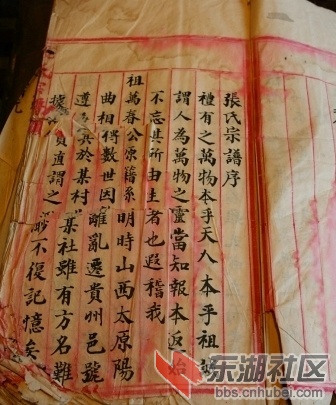 張氏宗譜序
禮有之萬物本乎天人本乎祖
謂人為萬物之靈當知報本返始
不忘其所由生者也遐稽我
祖萬春公原籍系明時山西太原陽
曲相得數世因離亂遷貴州邑號
遵 其於某村某社雖有方名難
據 員直謂之 不復記憶矣
东湖社区
bbs.cnhubei.com